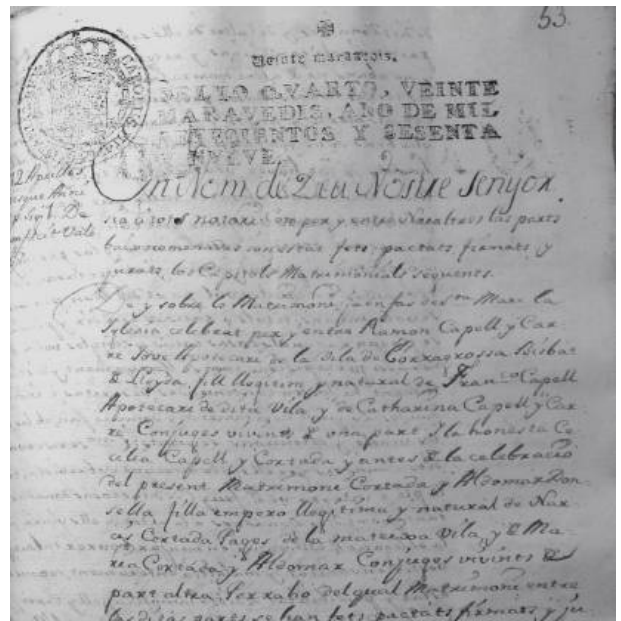 53.
Veinte maravedis.
SELLO QVARTO, VEINTE
MARAVEDIS, AÑO DE MIL
SETECIENTOS Y SESENTA
NVEVE.
En Nom de Deu Nostre Senyor
sia á tots notori com per y entre Nosaltres las parts
baix nomenadas son estats fets, pactats, firmats, y
jurats, los Capitols Matrimonials seguents.
De y sobre lo Matrimoni, ja en fas de Sta Mare la
Iglesia celebrat per y entre Ramon Capell y Car-
rè Jove Apotecari de la Vila de Torragrossa Bisbat
de Lleyda, fill llegitim y natural de Franco Capell
Apotecari de dita Vila, y de Catharina Capell y Car-
rè Conjuges vivints de una part, Y la honesta Ce-
cilia Capell y Cortada y antes de la celebració
del present Matrimoni Cortada y Aldomar Don-
sella filla empero llegitima y natural de Nar-
cis Cortada Pages de la mateixa Vila, y de Ma-
ria Cortada y Aldomar Conjuges vivints de
part altra. Per rahó del qual Matrimoni entre
las ditas parts se han fets, pactats, firmats y ju-